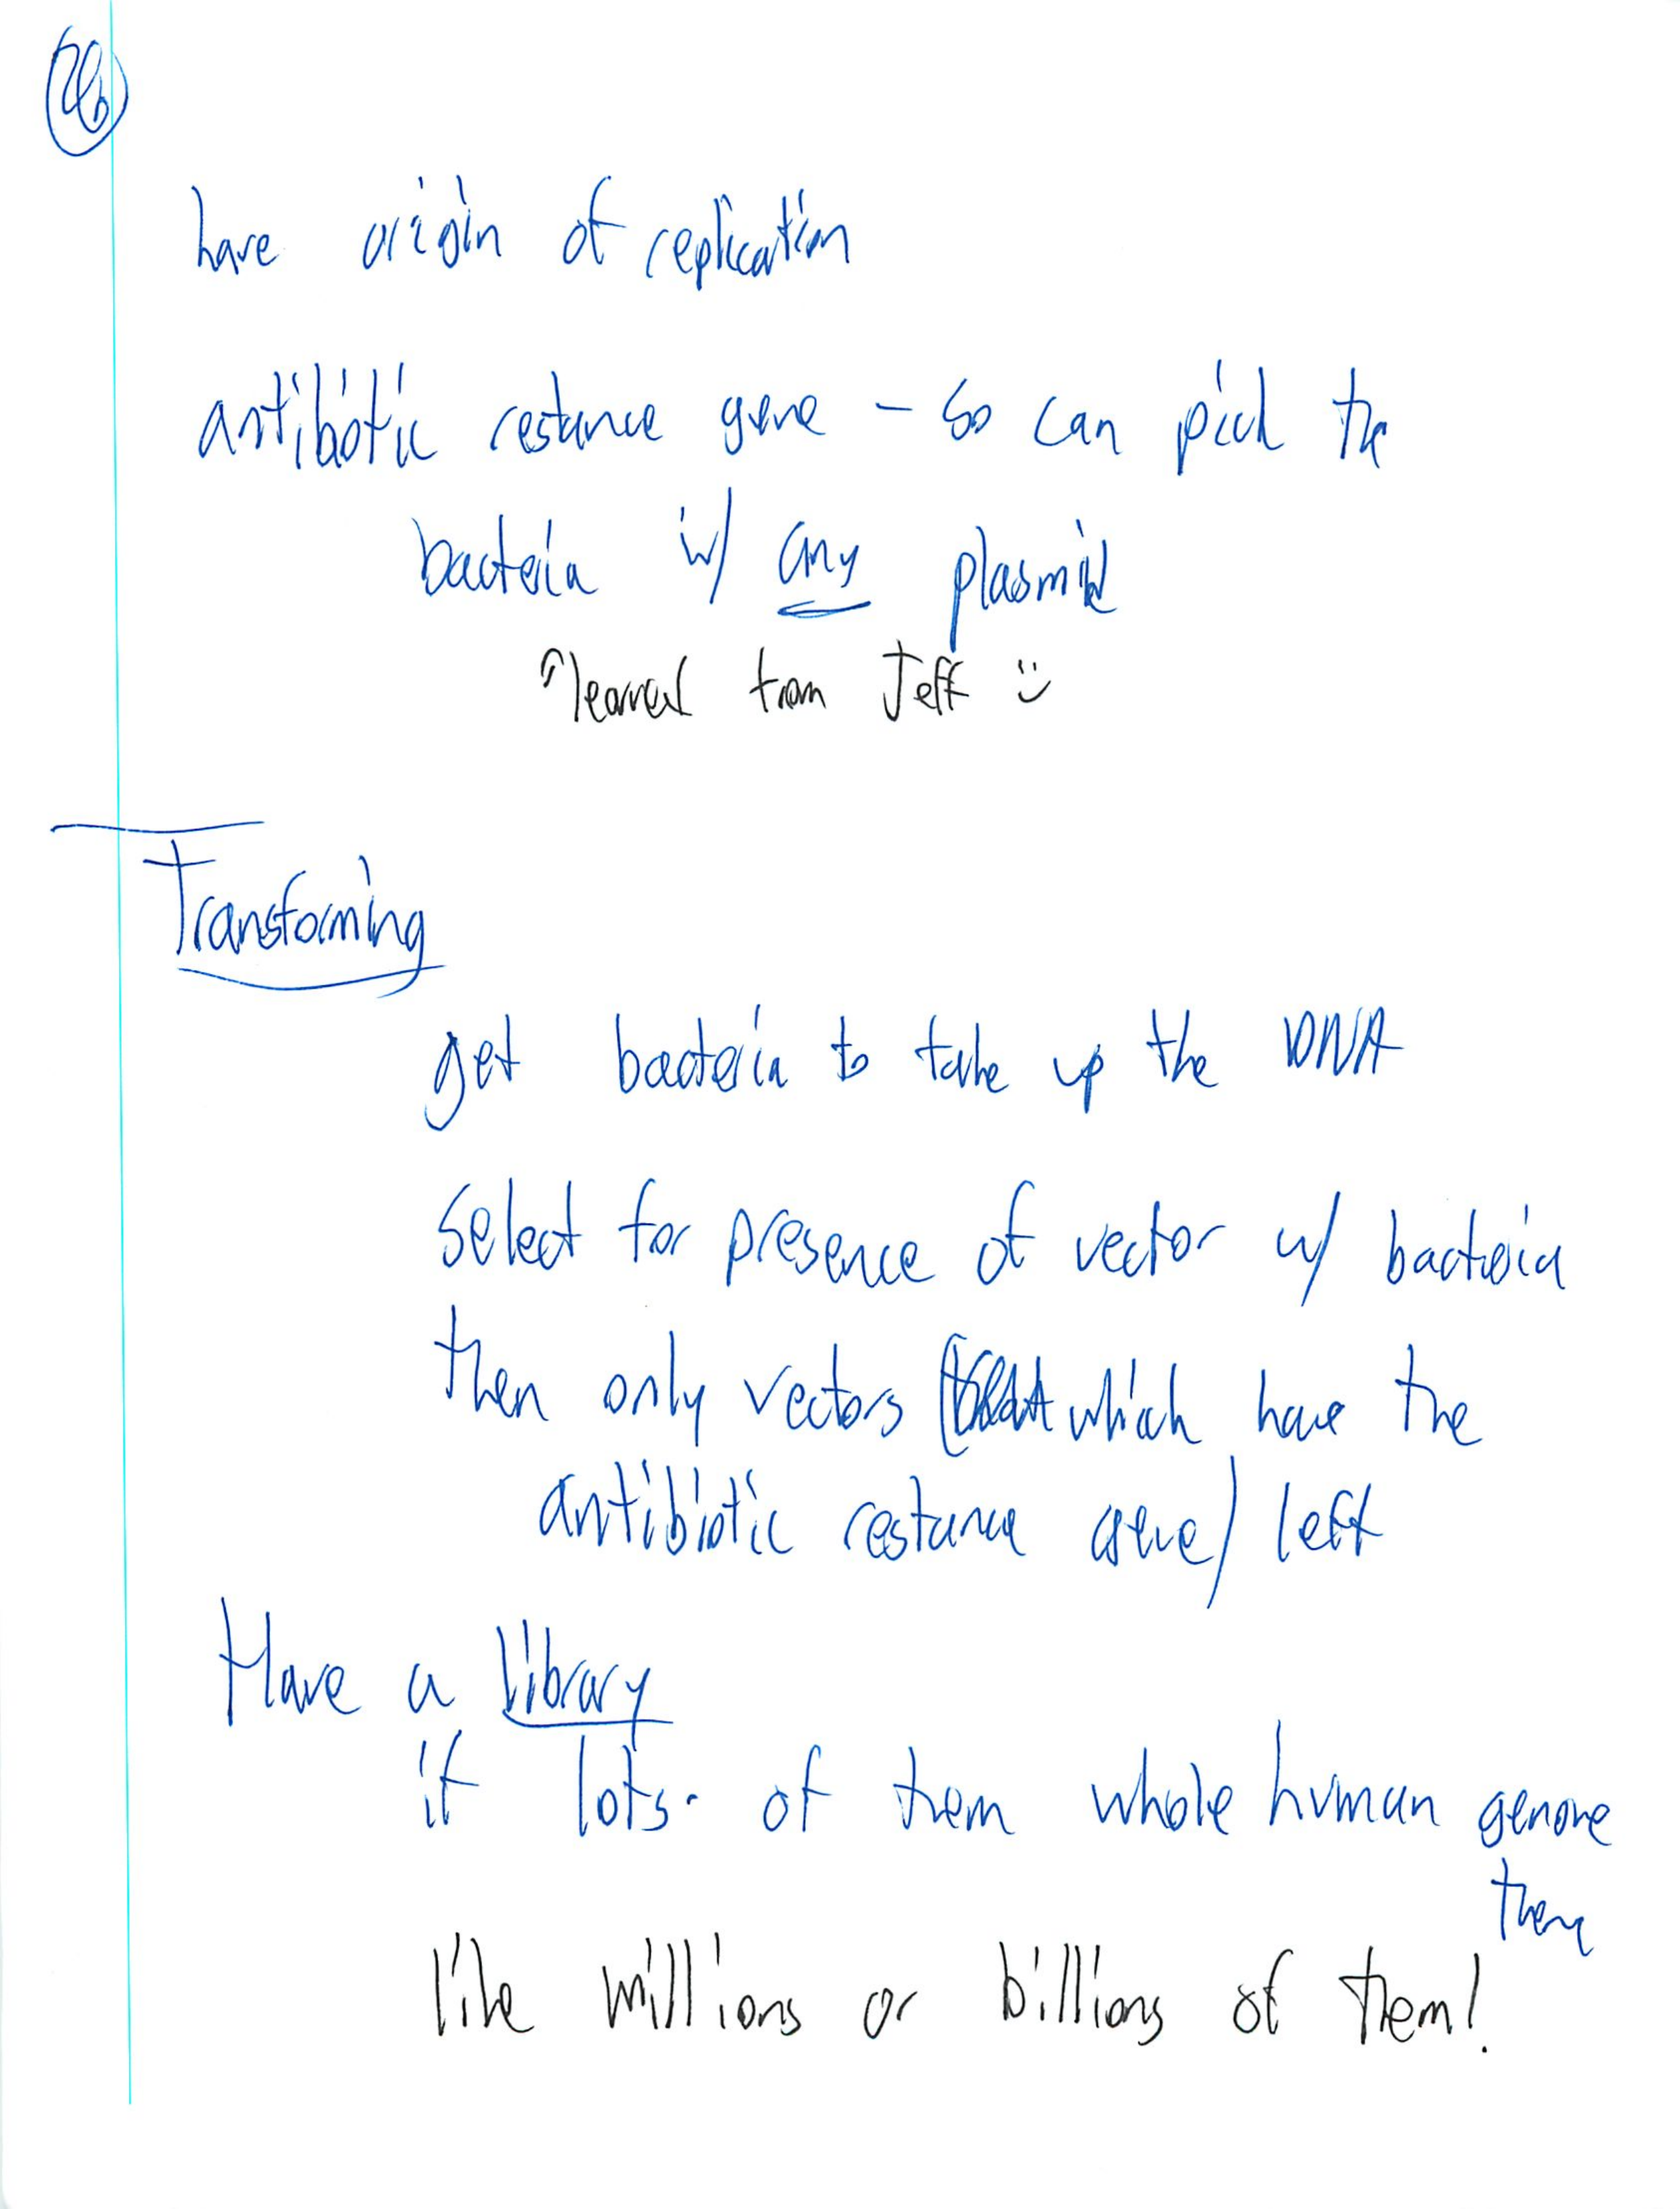 have origin of replication
antibiotic restance gene - so can pick the
bacteria w/ any plasmid
^learned from Jeff :)
Transforming
get bacteria to take up the DNA
Select for presence of vector w/ bacteria
then only vectors which have the
antibiotic restance gene/ left
Have a library
if lots of them whole human genome
there
like millions or billions of them!